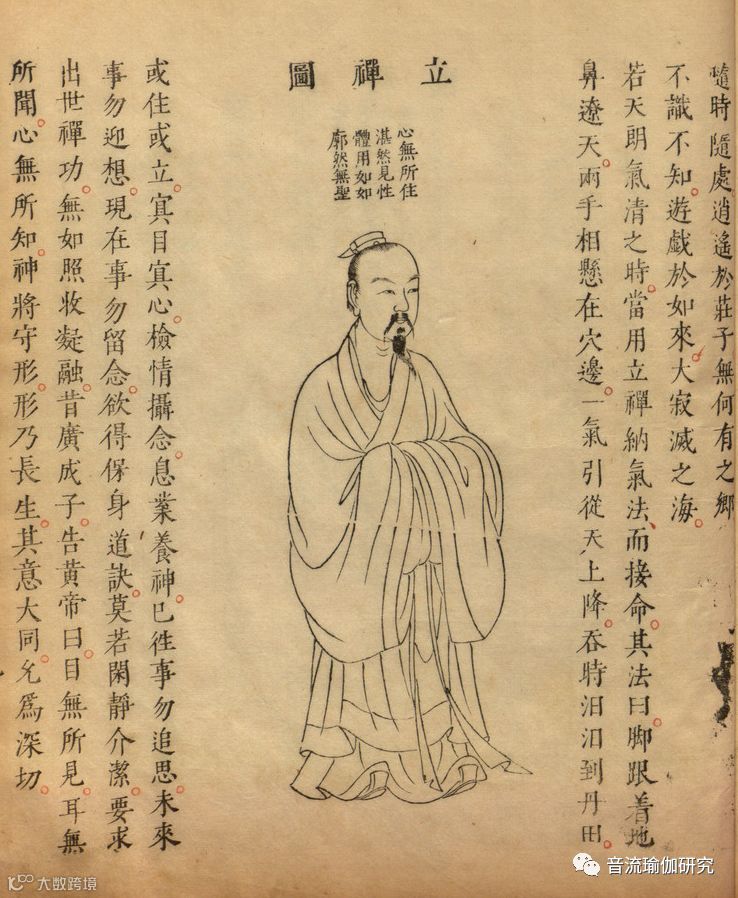 隨時隨處逍遙於莊子無何有之鄉
不識不知。遊戲於如來。大寂滅之海。
若天朗氣清之時。當用立禪納氣法、而接命。其法曰。脚跟着地
鼻遼天。兩手相懸在穴邊。一氣引從天上降。吞時汨汨到丹田。
立禪圖
心無所住
湛然見性
體用如如
廓然無聖
或住或立。㝠目㝠心。檢情攝念。息業養神。已徃事勿追思。未來
事勿迎想。現在事勿留念。欲得保身道訣。莫若閑靜介潔。要求
出世禪功。無如照收凝融。昔廣成子。告黃帝曰。目無所見。耳無
所聞。心無所知。神將守形。形乃長生。其意大同。允爲深切。
音流瑜伽研究
大数跨境